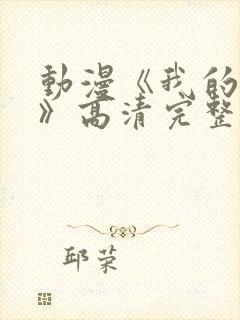 動漫《我的
》高清完整
邱荣